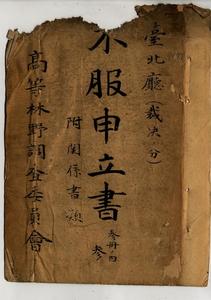 臺北廳(裁決ノ分)
不服申立書
附関係書類
參冊ノ內
參
高等林野調査委員會